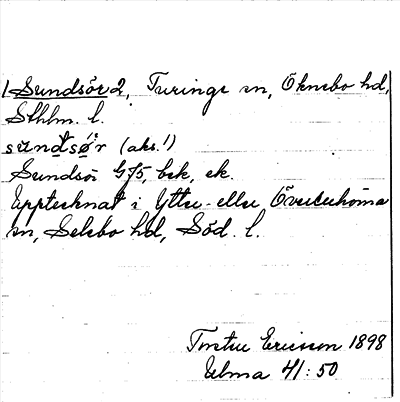 1 Sundsör 2, Turinge sn, Öknebo hd,
Sthlm. l.
sundsø̀r (aks.!)
Sundsör G75, bsk, ek.
Upptecknat i Ytter- eller Överenhörna
sn, Selebo hd, Söd. l.
Torsten Ericsson 1898
Ulma 41:50